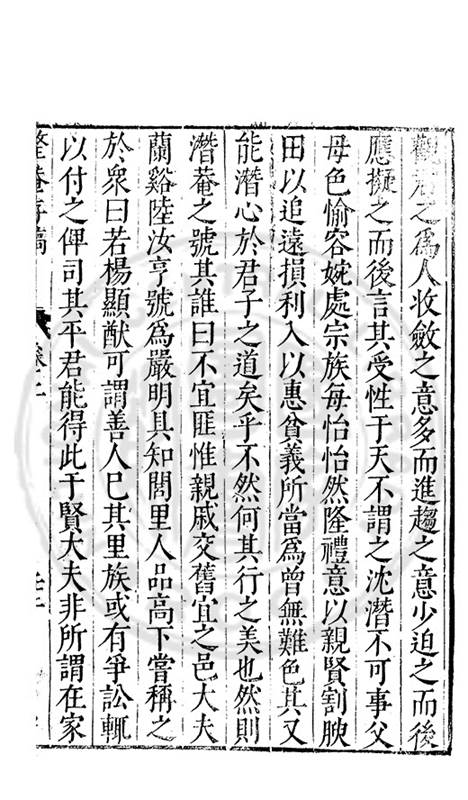 觀君之爲人收斂之意多而進趨之意少迫之而後
應擬之而後言其受性于天不謂之沈潛不可事父
母色愉容婉處宗族每怡怡然隆禮意以親賢割腴
田以追遠損利入以惠貧義所當爲曾無難色其又
能潛心於君子之道矣乎不然何其行之美也然則
潛菴之號其誰曰不宜匪惟親戚交舊宜之邑大夫
蘭谿陸汝亨號爲嚴明具知閭里人品高下嘗稱之
於衆曰若楊顯猷可謂善人已其里族或有爭訟輒
以付之俾司其平君能得此于賢大夫非所謂在家
整菴存稿 卷十